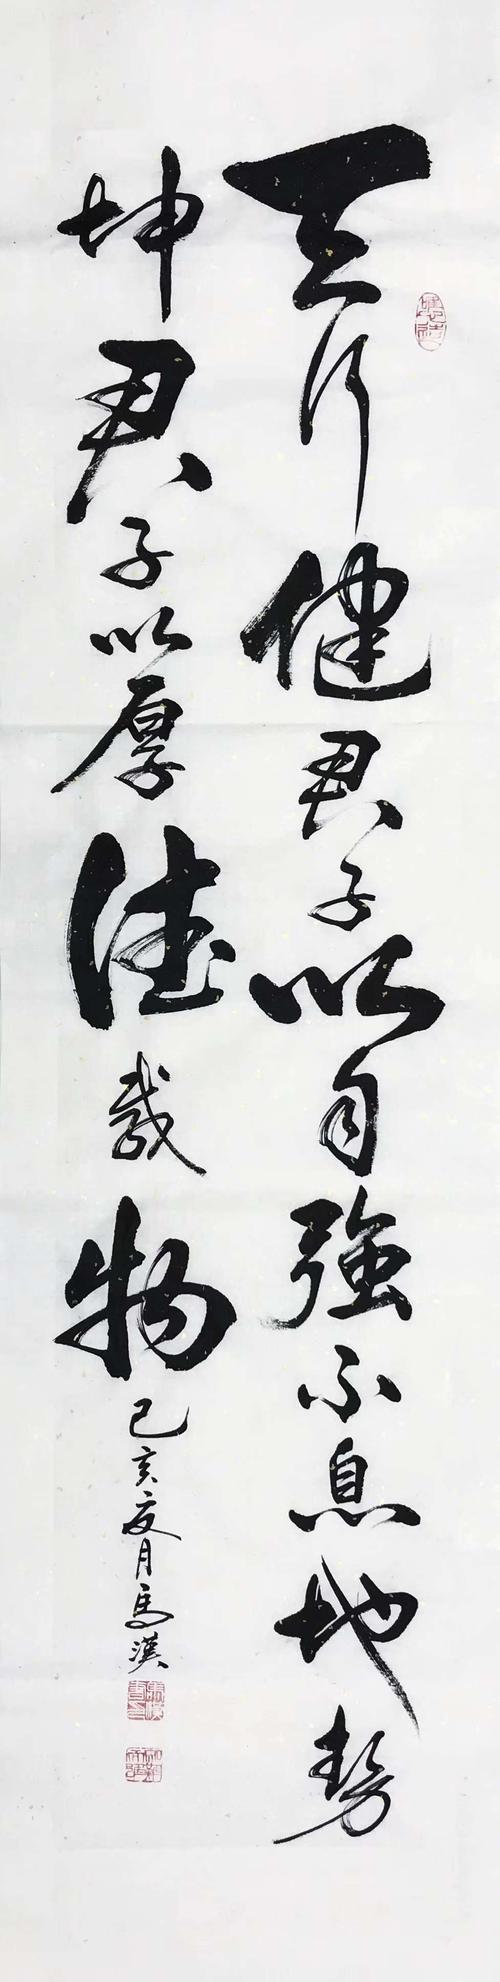 天行健君子以自強不息地勢
坤君子以厚德載物
己亥夏月馬漢